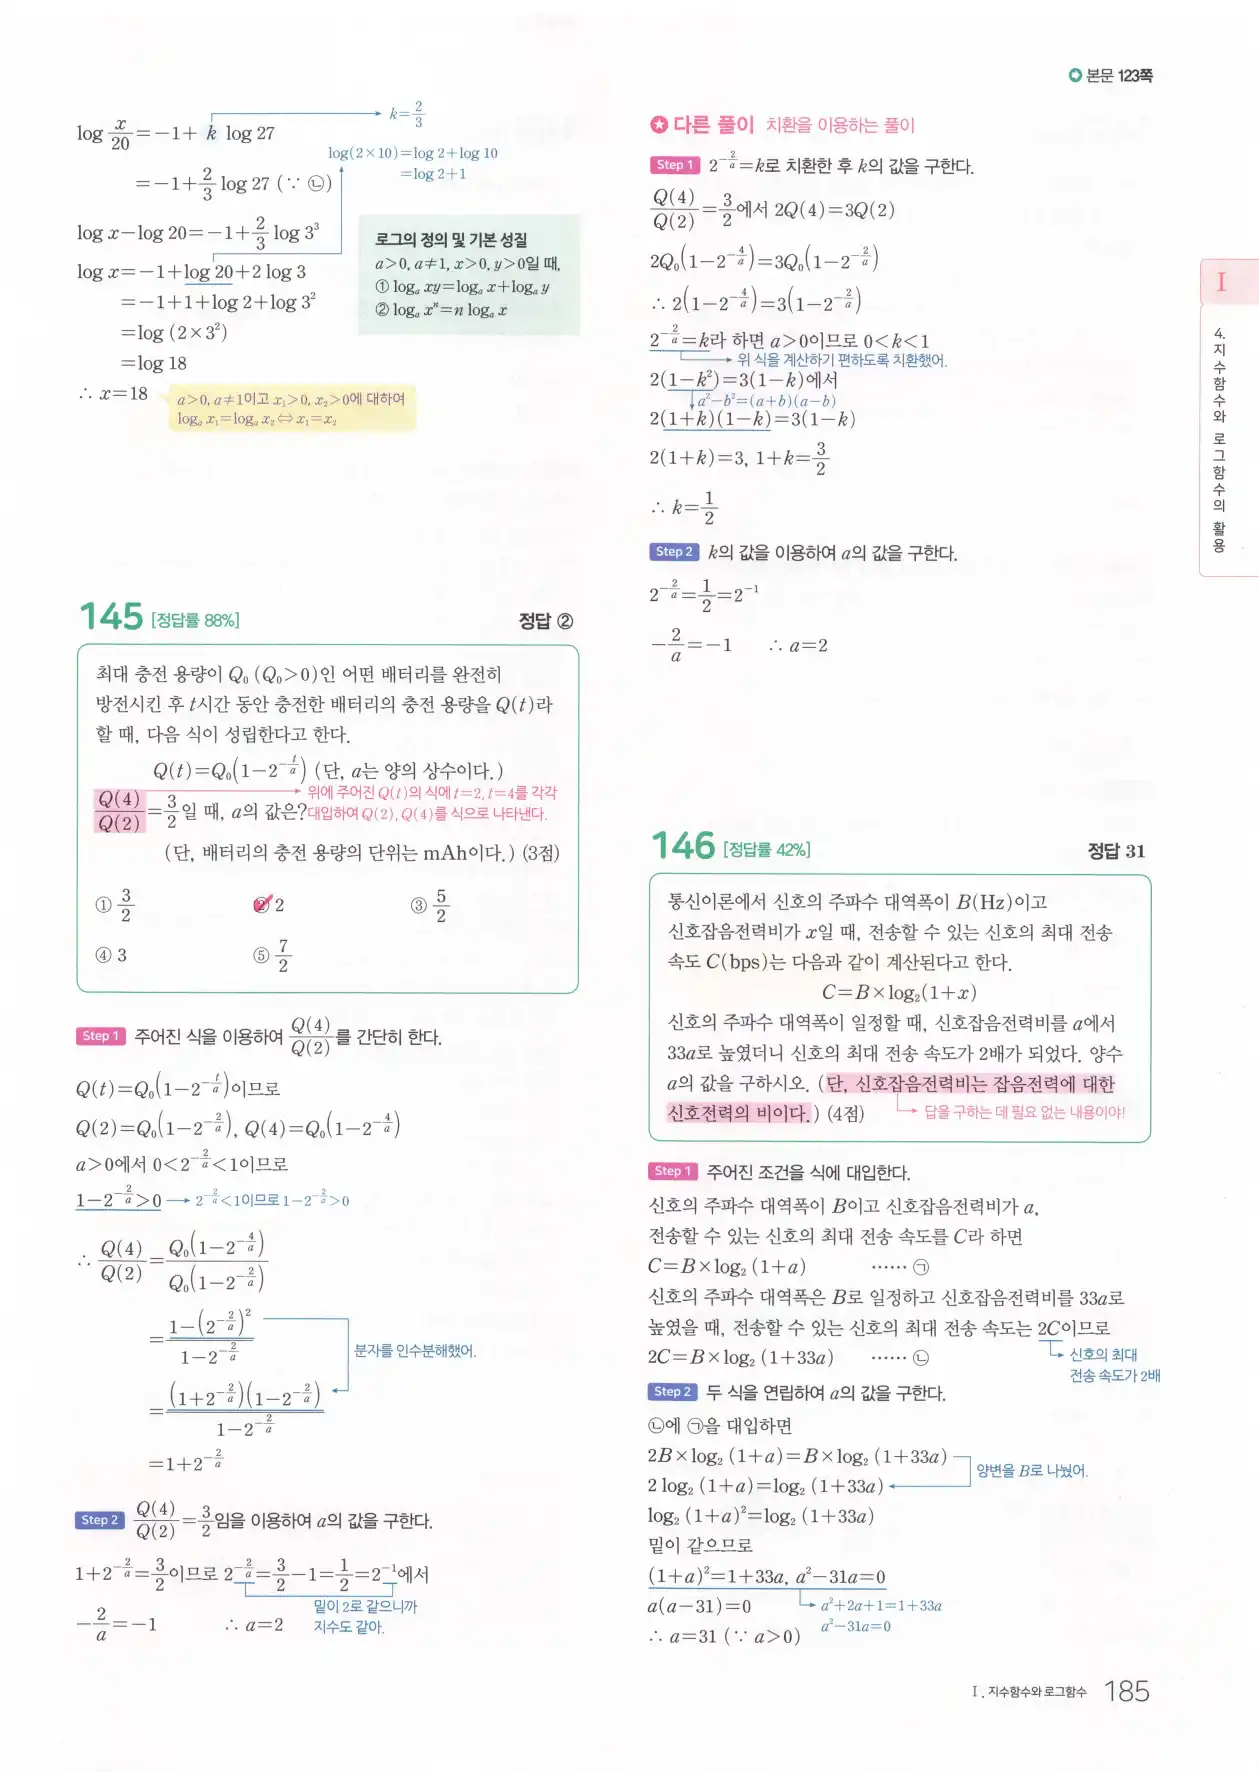 본문 123쪽
log x/20=-1+ k log 27
k=2/3
=-1+2/3 log 27 (∵ ㉡)
log(2×10)=log 2+log 10
=log 2+1
log x-log 20=-1+2/3 log 3³
log x=-1+log 20+2 log 3
=-1+1+log 2+log 3²
=log (2×3²)
=log 18
∴ x=18
로그의 정의 및 기본 성질
a>0, a≠1, x>0, y>0일 때,
① logₐ xy=logₐ x+logₐ y
② logₐ xⁿ=n logₐ x
a>0, a≠1이고 x₁>0, x₂>0에 대하여
logₐ x₁=logₐ x₂⇔x₁=x₂
145 [정답률 88%] 정답 ②
최대 충전 용량이 Q₀ (Q₀>0)인 어떤 배터리를 완전히
방전시킨 후 t시간 동안 충전한 배터리의 충전 용량을 Q(t)라
할 때, 다음 식이 성립한다고 한다.
Q(t)=Q₀(1-2^(-t/a)) (단, a는 양의 상수이다.)
위에 주어진 Q(t)의 식에 t=2, t=4를 각각
Q(4)/Q(2)=3/2일 때, a의 값은? 대입하여 Q(2), Q(4)를 식으로 나타낸다.
(단, 배터리의 충전 용량의 단위는 mAh이다.) (3점)
① 3/2 ② 2 ③ 5/2
④ 3 ⑤ 7/2
Step 1 주어진 식을 이용하여 Q(4)/Q(2)를 간단히 한다.
Q(t)=Q₀(1-2^(-t/a))이므로
Q(2)=Q₀(1-2^(-2/a)), Q(4)=Q₀(1-2^(-4/a))
a>0에서 0<2^(-2/a)<1이므로
1-2^(-2/a)>0 → 2^(-2/a)<1이므로 1-2^(-2/a)>0
∴ Q(4)/Q(2)=Q₀(1-2^(-4/a))/Q₀(1-2^(-2/a))
=(1-(2^(-2/a))²)/(1-2^(-2/a))
분자를 인수분해했어.
=(1+2^(-2/a))(1-2^(-2/a))/(1-2^(-2/a))
=1+2^(-2/a)
Step 2 Q(4)/Q(2)=3/2임을 이용하여 a의 값을 구한다.
1+2^(-2/a)=3/2이므로 2^(-2/a)=3/2-1=1/2=2⁻¹에서
밑이 2로 같으니까
지수도 같아.
-2/a=-1 ∴ a=2
다른 풀이 치환을 이용하는 풀이
Step 1 2^(-2/a)=k로 치환한 후 k의 값을 구한다.
Q(4)/Q(2)=3/2에서 2Q(4)=3Q(2)
2Q₀(1-2^(-4/a))=3Q₀(1-2^(-2/a))
∴ 2(1-2^(-4/a))=3(1-2^(-2/a))
2^(-2/a)=k라 하면 a>0이므로 0<k<1
위 식을 계산하기 편하도록 치환했어.
2(1-k²)=3(1-k)에서
a²-b²=(a+b)(a-b)
2(1+k)(1-k)=3(1-k)
2(1+k)=3, 1+k=3/2
∴ k=1/2
Step 2 k의 값을 이용하여 a의 값을 구한다.
2^(-2/a)=1/2=2⁻¹
-2/a=-1 ∴ a=2
146 [정답률 42%] 정답 31
통신이론에서 신호의 주파수 대역폭이 B(Hz)이고
신호잡음전력비가 x일 때, 전송할 수 있는 신호의 최대 전송
속도 C(bps)는 다음과 같이 계산된다고 한다.
C=B×log₂(1+x)
신호의 주파수 대역폭이 일정할 때, 신호잡음전력비를 a에서
33a로 높였더니 신호의 최대 전송 속도가 2배가 되었다. 양수
a의 값을 구하시오. (단, 신호잡음전력비는 잡음전력에 대한
신호전력의 비이다.) (4점) 답을 구하는 데 필요 없는 내용이야!
Step 1 주어진 조건을 식에 대입한다.
신호의 주파수 대역폭이 B이고 신호잡음전력비가 a,
전송할 수 있는 신호의 최대 전송 속도를 C라 하면
C=B×log₂ (1+a) …… ㉠
신호의 주파수 대역폭은 B로 일정하고 신호잡음전력비를 33a로
높였을 때, 전송할 수 있는 신호의 최대 전송 속도는 2C이므로
2C=B×log₂ (1+33a) …… ㉡
신호의 최대
전송 속도가 2배
Step 2 두 식을 연립하여 a의 값을 구한다.
㉡에 ㉠을 대입하면
2B×log₂ (1+a)=B×log₂ (1+33a)
양변을 B로 나눴어.
2 log₂ (1+a)=log₂ (1+33a)
log₂ (1+a)²=log₂ (1+33a)
밑이 같으므로
(1+a)²=1+33a, a²-31a=0
a(a-31)=0
a²+2a+1=1+33a
a²-31a=0
∴ a=31 (∵ a>0)
I
4. 지수함수와 로그함수의 활용
I. 지수함수와 로그함수 185